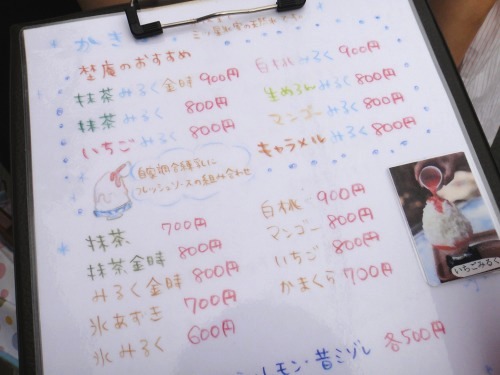 かき
埜庵のおすすめ
抹茶みるく金時 900円
抹茶みるく 800円
いちごみるく 800円
白桃みるく 900円
生めろんみるく 800円
マンゴーみるく 800円
キャラメルみるく 800円
自家調合練乳に
フレッシュソースの組み合わせ
抹茶 700円
抹茶金時 800円
みるく金時 800円
氷あずき 700円
氷みるく 600円
白桃 900円
マンゴー 800円
いちご 800円
かまくら 700円
いちごみるく
レモン・昔ミゾレ 各500円